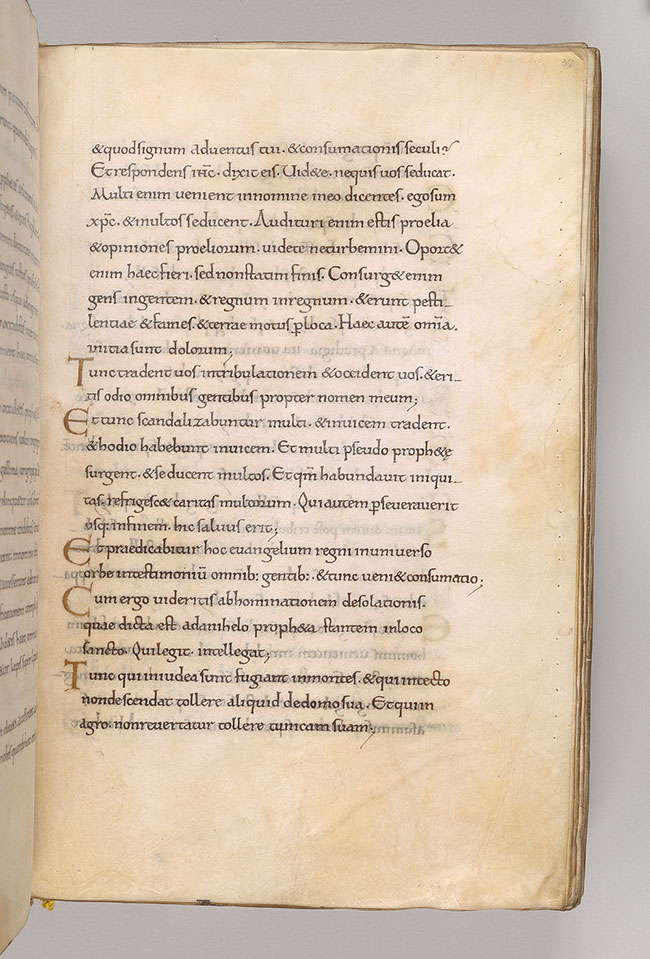 &quodsignum aduentus tui. &consumationis seculi?
Et respondens ihc. dixit eis. Uid&e. nequis uos seducat.
Multi enim uenient innomine meo dicentes. egosum
xpc. &multos seducent. Audituri enim estis proelia
&opiniones proeliorum. uidete neturbemini. Oport&
enim haec fieri. sed nonstatim finis. Consurg& enim
gens ingentem. &regnum inregnum. &erunt pesti_
lentiae &fames. &terrae motus ploca. Haec autē omīa.
initia sunt dolorum;
Tunc tradent uos intribulationem &occident uos. &eri_
tis odio omnibus gentibus propter nomen meum;
Et tunc scandalizabuntur multi. &inuicem tradent.
&hodio habebunt inuicem. Et multi pseudo proph&e
surgent. &seducent multos. Etqm̄ habundauit iniqui_
tas. refrigesc& caritas multorum. Qui autem pseuerauerit
usq; infinem. hic saluus erit;
Et praedicabitur hoc euangelium regni inuniuerso
orbe intestimoniū omnib; gentib; &tunc ueni&consumatio;
Cum ergo uideritis abhominationem desolationis.
quae dicta est adanihelo proph&a stantem inloco
sancto. Quilegit. intellegat;
Tunc qui iniudea sunt fugiant inmontes. &qui intecto
nondescendat tollere aliquid dedomo sua. Et qui in
agro. nonreuertatur tollere tunicam suam;